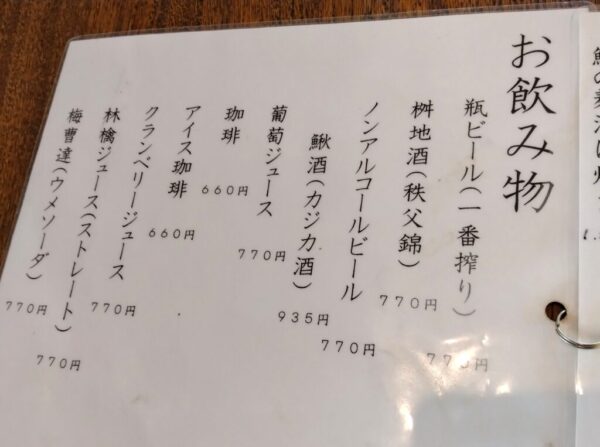 お飲み物
瓶ビール(一番搾り) 770円
桝地酒(秩父錦) 770円
ノンアルコールビール 770円
鰍酒(カジカ酒) 935円
葡萄ジュース 770円
珈琲 660円
アイス珈琲 660円
クランベリージュース 770円
林檎ジュース(ストレート) 770円
梅曹達(ウメソーダ) 770円